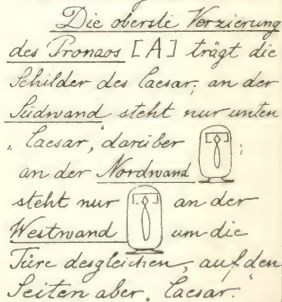 Die oberste Verzierung
des Pronaos [A] trägt die
Schilder des Caesar; an der
Südwand steht nur unten
„Caesar, darüber
an der Nordwand ;
steht nur an der
Westwand um die
Türe desgleichen, auf den
Seiten aber „Caesar."